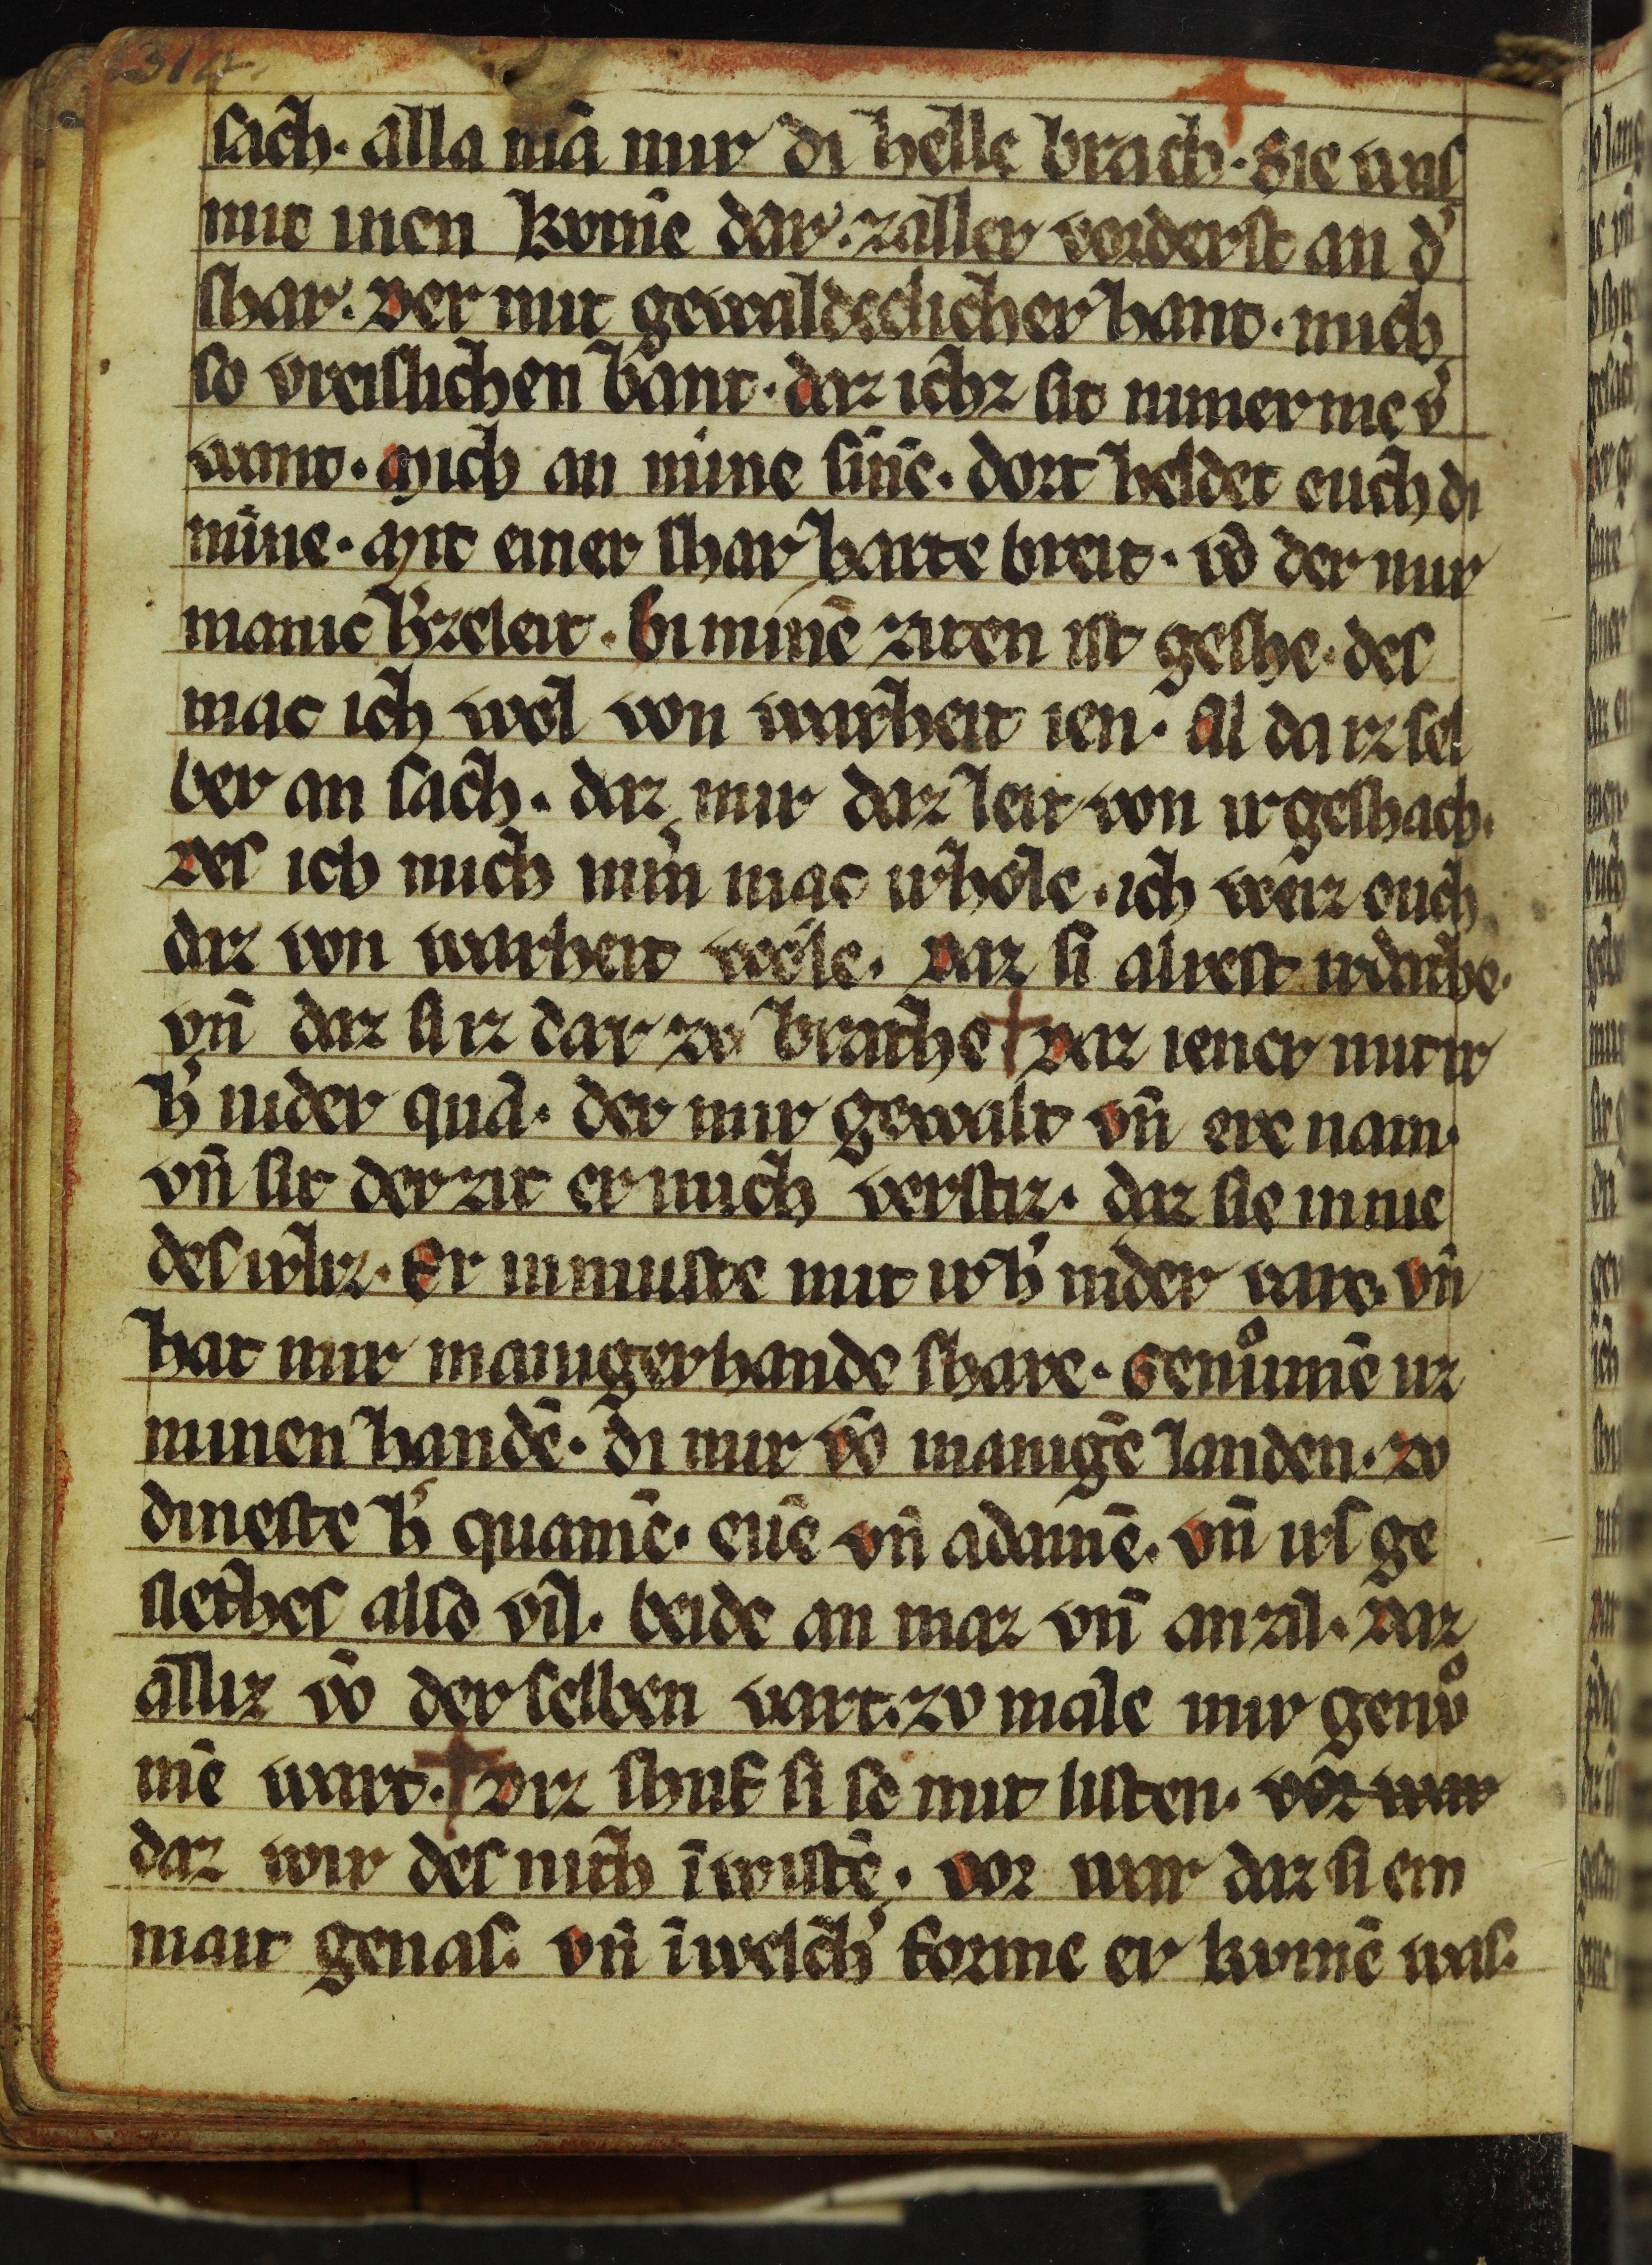 314
sach. alla mā mir di helle brach. Sie was
mit inen kvmē dar. zaller vorderst an d'
shar. Der mit gewaldeclicher hant. mich
so vreislichen bant. daz ichz sit nimer me v'
want. Mich an mine sinē. dort heldet euch di
mīne. Mit einer shar harte breit. vō der mir
manic h'zeleit. bi minē ziten ist geshe. des
mac ich wol von warheit ien. Al da iz sel
ber an sach. daz mir daz leit von ir geshach.
Des ich mich nim̄ mac irhole. ich weiz ouch
daz von warheit wole. Daz si alrest irdathe.
vn̄ daz si iz dar zv brathe Daz iener mit ir
h' nider quā. der mir gewalt vn̄ ere nam.
vn̄ sit der zit er mich verstiz. daz sie in nie
des irliz. Er inmuste mit ir h' nider vare. vn̄
hat mir manigerhande share. Genůmē uz
minen handē. di mir vō manigē landen. zv
dineste h' quamē. euē vn̄ adamē. vn̄ irs ge
slethes also vil. beide an maz vn̄ an zil. Daz
alliz vō der selben vart. zv male mir genů
mē wart. Diz shuf si so mit listen. vor war
daz wir des nich īwistē. vor war daz si ein
mait genas. vn̄ ī welch' forme er kvmē was.